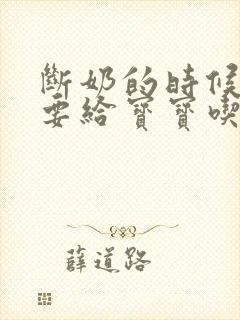 斷奶的時候
要給寶寶喫
薛道路